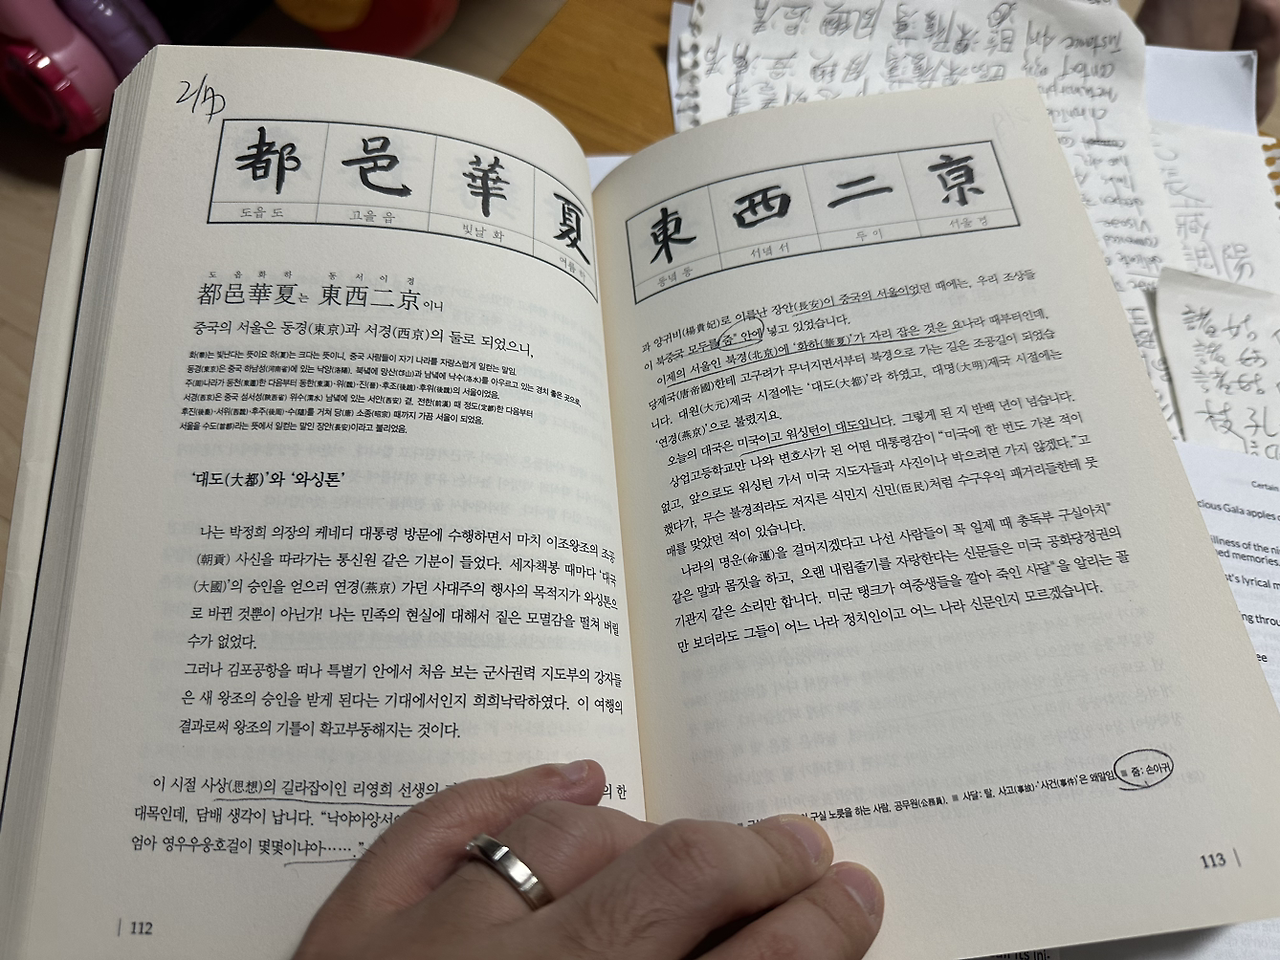 都 邑 華 夏
도읍 도 고을 읍 빛날 화 여름 하
도 읍 화 하 동 서 이 경
都邑華夏는 東西二京이니
중국의 서울은 동경(東京)과 서경(西京)의 둘로 되었으니,
화(華)는 빛난다는 뜻이요 하(夏)는 크다는 뜻이니, 중국 사람들이 자기 나라를 자랑스럽게 일컫는 말임.
동경(東京)은 중국 하남성(河南省)에 있는 낙양(洛陽). 북녘에 망산(邙山)과 남녘에 낙수(洛水)를 아우르고 있는 경치 좋은 곳으로,
주(周)나라가 동천(東遷)한 다음부터 동한(東漢)·위(魏)·진(晉)·후조(後趙)·후위(後魏)의 서울이었음.
서경(西京)은 중국 섬서성(陝西省) 위수(渭水) 남녘에 있는 서안(西安) 곁. 전한(前漢) 때 정도(定都)한 다음부터
후진(後秦)·서위(西魏)·후주(後周)·수(隋)를 거쳐 당(唐) 소종(昭宗) 때까지 가끔 서울이 되었음.
서울을 수도(首都)라는 뜻에서 일컫는 말인 장안(長安)이라고 불리었음.
'대도(大都)'와 '와싱톤'
나는 박정희 의장의 케네디 대통령 방문에 수행하면서 마치 이조왕조의 조공
(朝貢) 사신을 따라가는 통신원 같은 기분이 들었다. 세자책봉 때마다 '대국
(大國)'의 승인을 얻으러 연경(燕京) 가던 사대주의 행사의 목적지가 와싱톤으
로 바뀐 것뿐이 아닌가! 나는 민족의 현실에 대해서 짙은 모멸감을 떨쳐 버릴
수가 없었다.
그러나 김포공항을 떠나 특별기 안에서 처음 보는 군사권력 지도부의 강자들
은 새 왕조의 승인을 받게 된다는 기대에서인지 희희낙락하였다. 이 여행의
결과로써 왕조의 기틀이 확고부동해지는 것이다.
이 시절 사상(思想)의 길라잡이인 리영희 선생의 의 한
대목인데, 담배 생각이 납니다. "낙야아앙서
엄아 영우우웅호걸이 몇몇이냐아……."
112
東 西 二 京
동녘 동 서녘 서 두 이 서울 경
과 양귀비(楊貴妃)로 이름난 장안(長安)이 중국의 서울이었던 때에는, 우리 조상들
이 북중국 모두를 줌" 안에 넣고 있었습니다.
이제의 서울인 북경(北京)에 '화하(華夏)'가 자리 잡은 것은 요나라 때부터인데,
당제국(唐帝國)한테 고구려가 무너지면서부터 북경으로 가는 길은 조공길이 되었습
니다. 대원(大元)제국 시절에는 '대도(大都)'라 하였고, 대명(大明)제국 시절에는
'연경(燕京)'으로 불렸지요.
오늘의 대국은 미국이고 워싱턴이 대도입니다. 그렇게 된 지 반백 년이 넘습니다.
상업고등학교만 나와 변호사가 된 어떤 대통령감이 "미국에 한 번도 가본 적이
없고, 앞으로도 워싱턴 가서 미국 지도자들과 사진이나 박으려면 가지 않겠다."고
했다가, 무슨 불경죄라도 저지른 식민지 신민(臣民)처럼 수구우익 패거리들한테 뭇
매를 맞았던 적이 있습니다.
나라의 명운(命運)을 걸머지겠다고 나선 사람들이 꼭 일제 때 총독부 구실아치"
같은 말과 몸짓을 하고, 오랜 내림줄기를 자랑한다는 신문들은 미국 공화당정권의
기관지 같은 소리만 합니다. 미군 탱크가 여중생들을 깔아 죽인 사달"을 알리는 꼴
만 보더라도 그들이 어느 나라 정치인이고 어느 나라 신문인지 모르겠습니다.
구실 노릇을 하는 사람, 공무원(公務員). ■ 사달: 탈, 사고(事故)·'사건(事件)'은 왜말임. ■ 줌: 손아귀
113
調陽
枝孔
Certain
cious Gala apples
illness of the
ed memories.
t's lyrical
ng throu
ee